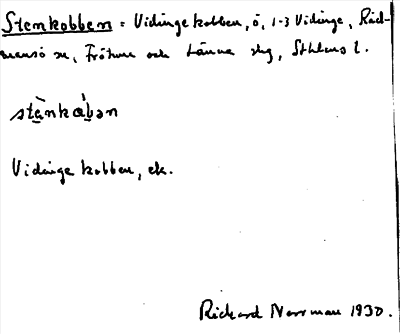 Stenkobben = Vidinge kobben, ö, 1-3 Vidinge, Räd-
mansö sn, Fröhune och Länna slg, Sthlms l.
Vidinge kobben, ek.
Rickard Norrman 1930.